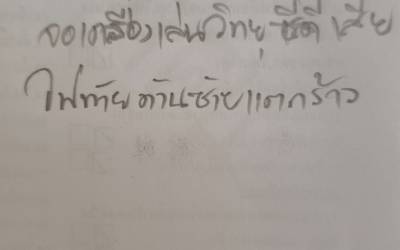 จอเครื่องเล่นวิทยุ ซีดี เสีย
ไฟท้ายด้านซ้ายแตกร้าว